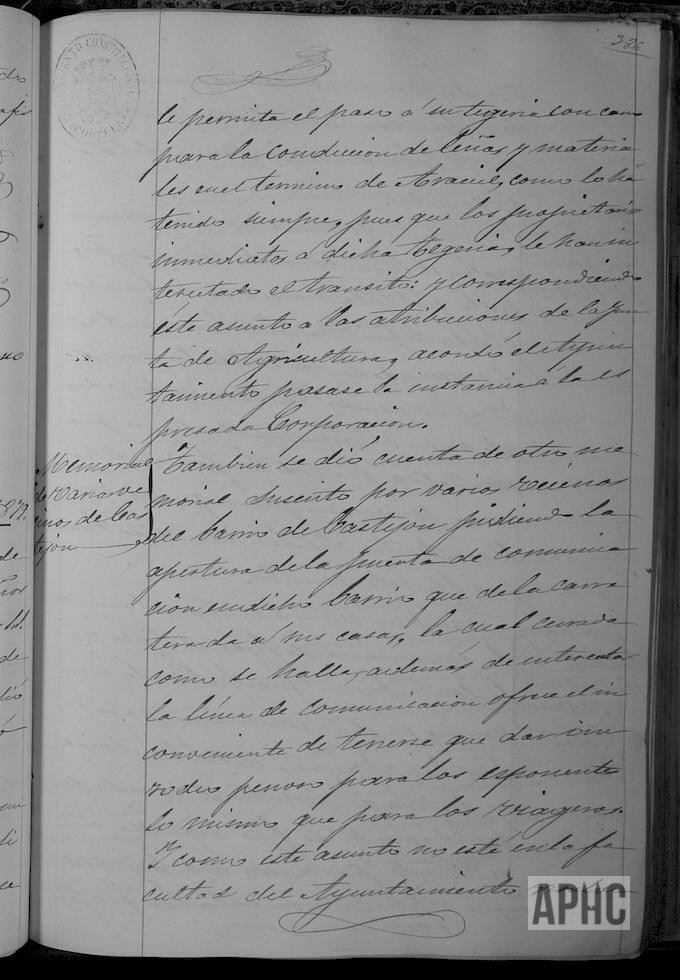 386
le permita el paso á su tegeria con carros
para la conducion de leñas y materia
les en el termino de Araciel, como lo ha
tenido siempre, pues que los propietarios
inmediatos á dicha tegeria, le han in
tersetado el transito: y correspondiendo
este asunto a las atribuciones de la Jun
ta de Agricultura, acordó el Ayun
tamiento pasase la instancia á la es
presada Corporacion.
Memorial
de varios ve
cinos de Cas
tejon
Tambien se dió cuenta de otro me
morial suscrito por varios vecinos
del barrio de Castejon pidiendo la
apertura de la puerta de comunica
cion en dicho barrio que de la carre
tera da á sus casas, la cual cerrada
como se halla, además de intercepta
la línea de comunicacion ofrece el in
conveniente de tenerse que dar un
rodeo penoso para los esponentes
lo mismo que para los viageros.
Y como este asunto no esté en la fa
cultad del Ayuntamiento
1879
APHC